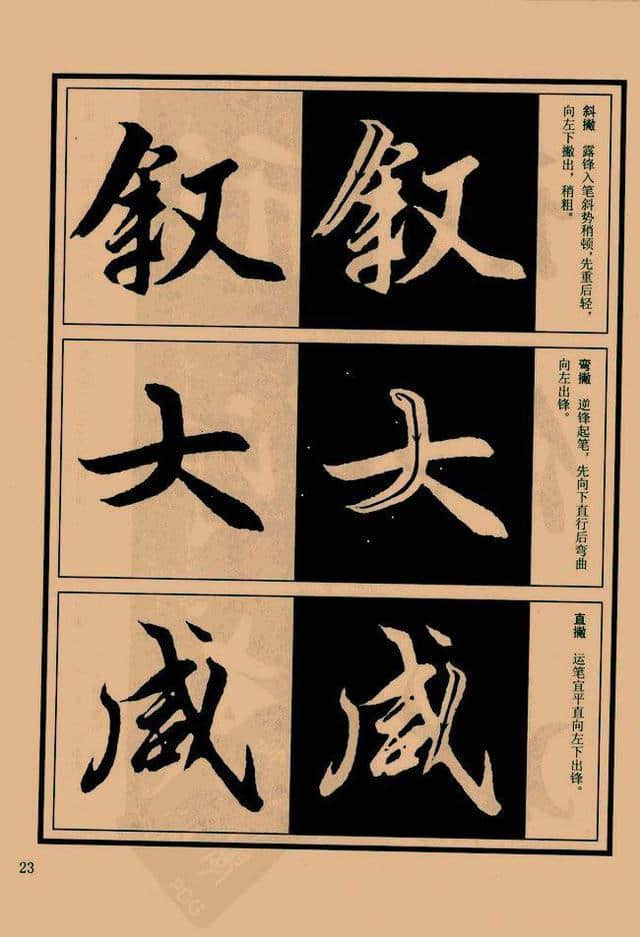 斜撇　露锋入笔斜势稍顿，先重后轻，
向左下撇出，稍粗。
叙
叙
弯撇　逆锋起笔，先向下直行后弯曲
向左出锋。
大
大
直撇　运笔宜平直向左下出锋。
咸
咸
23
PDG